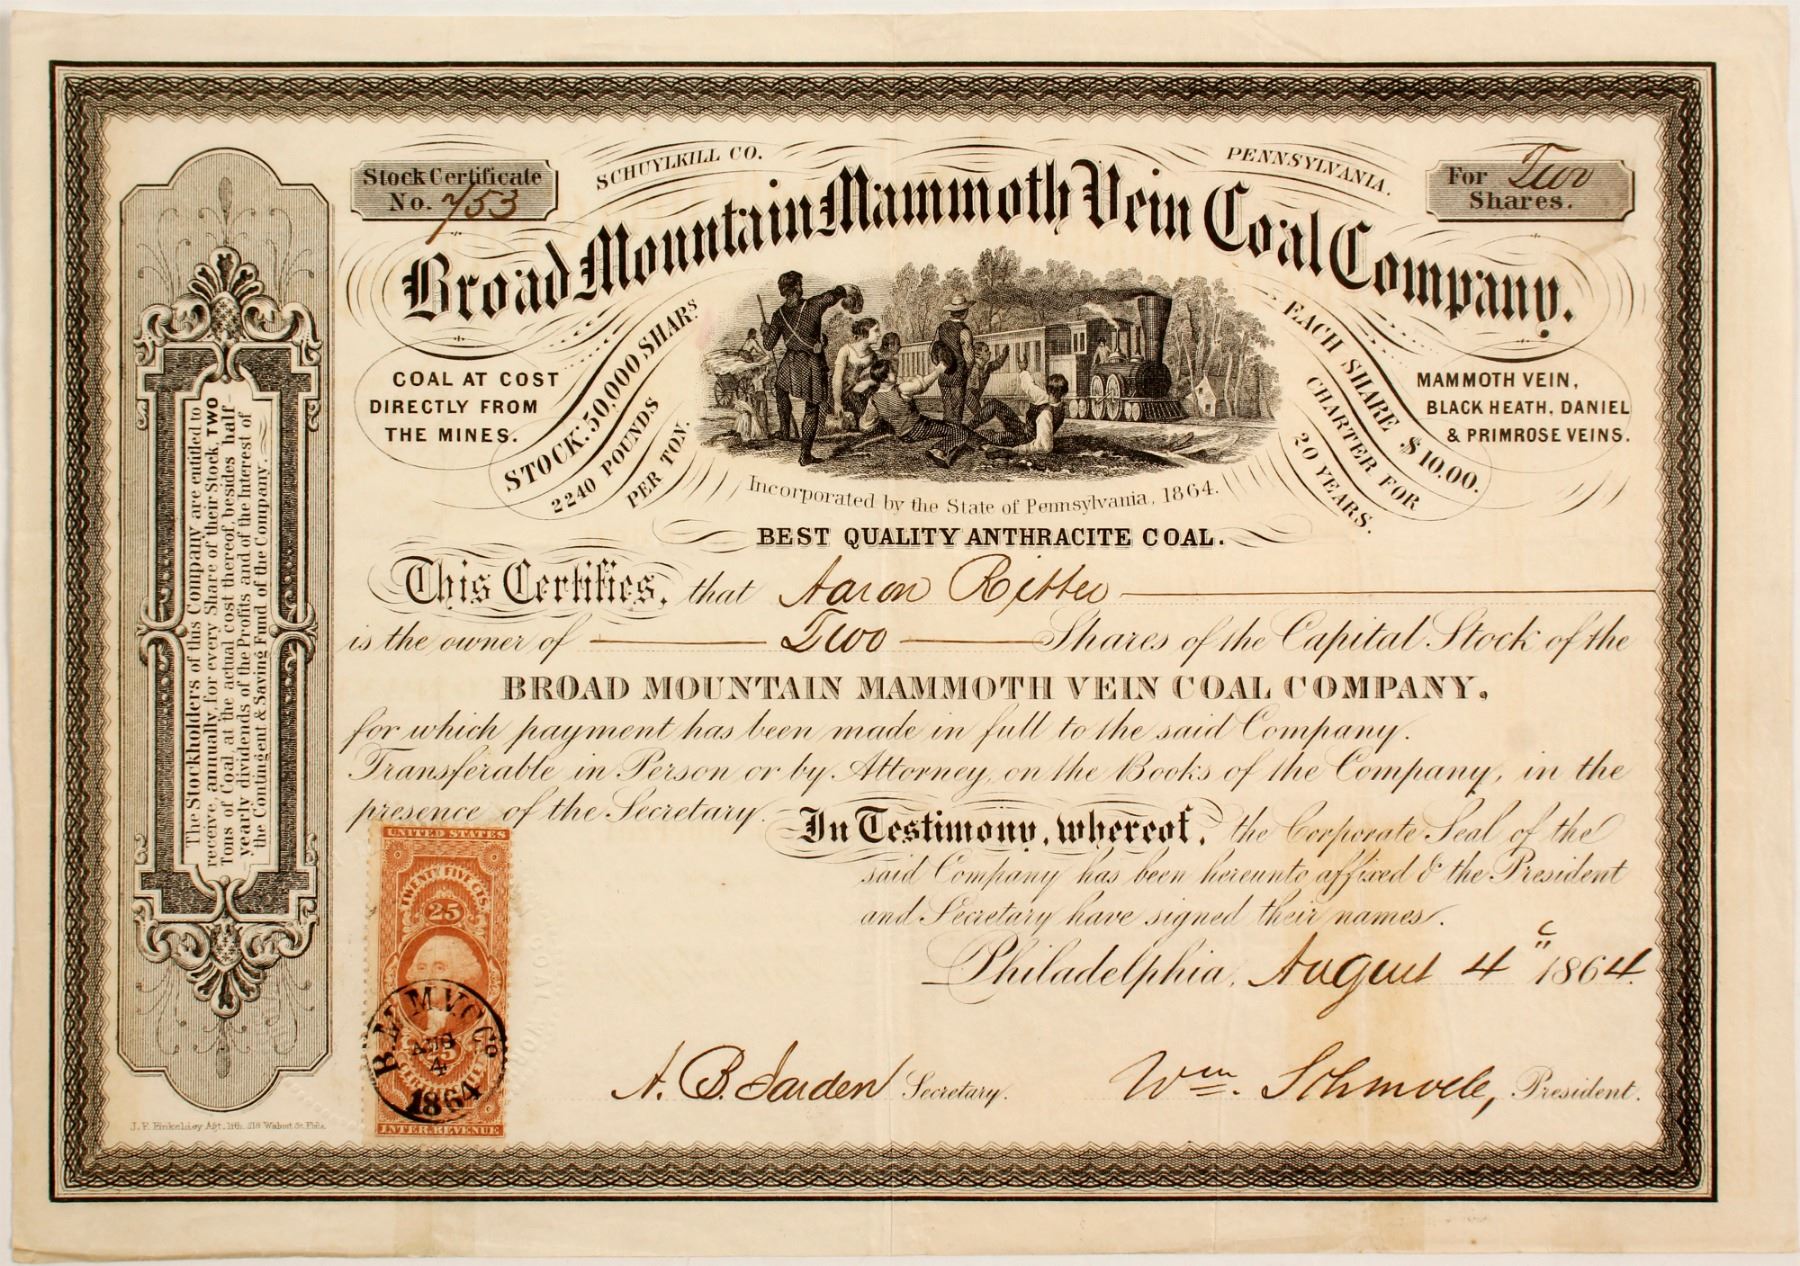 Stock Certificate
No. 753
SCHUYLKILL CO.
PENNSYLVANIA.
For Two
Shares.
Broad Mountain Mammoth Vein Coal Company.
COAL AT COST
DIRECTLY FROM
THE MINES.
STOCK: 50,000 SHARS
2240 POUNDS
PER TON.
EACH SHARE $10.00.
CHARTER FOR
20 YEARS.
MAMMOTH VEIN,
BLACK HEATH, DANIEL
& PRIMROSE VEINS.
Incorporated by the State of Pennsylvania, 1864.
BEST QUALITY ANTHRACITE COAL.
This Certifies, that Aaron Ritter
is the owner of Two Shares of the Capital Stock of the
BROAD MOUNTAIN MAMMOTH VEIN COAL COMPANY,
for which payment has been made in full to the said Company.
Transferable in Person or by Attorney, on the Books of the Company, in the
presence of the Secretary.
In Testimony, whereof, the Corporate Seal of the
said Company has been hereunto affixed & the President
and Secretary have signed their names.
Philadelphia, August 4 1864.
A. B. Jarden Secretary.
Wm. Schmoele, President.
The Stockholders of this Company are entitled to
receive, annually, for every Share of their Stock, TWO
Tons of Coal, at the actual cost thereof, besides half-
yearly dividends of the Profits and of the Interest of
the Contingent & Saving Fund of the Company.
UNITED STATES
TWENTY FIVE CTS.
25
B. M. M. V. C. Co
AUG
4
1864
INTER. REVENUE
lith. 218 Walnut St. Phila.